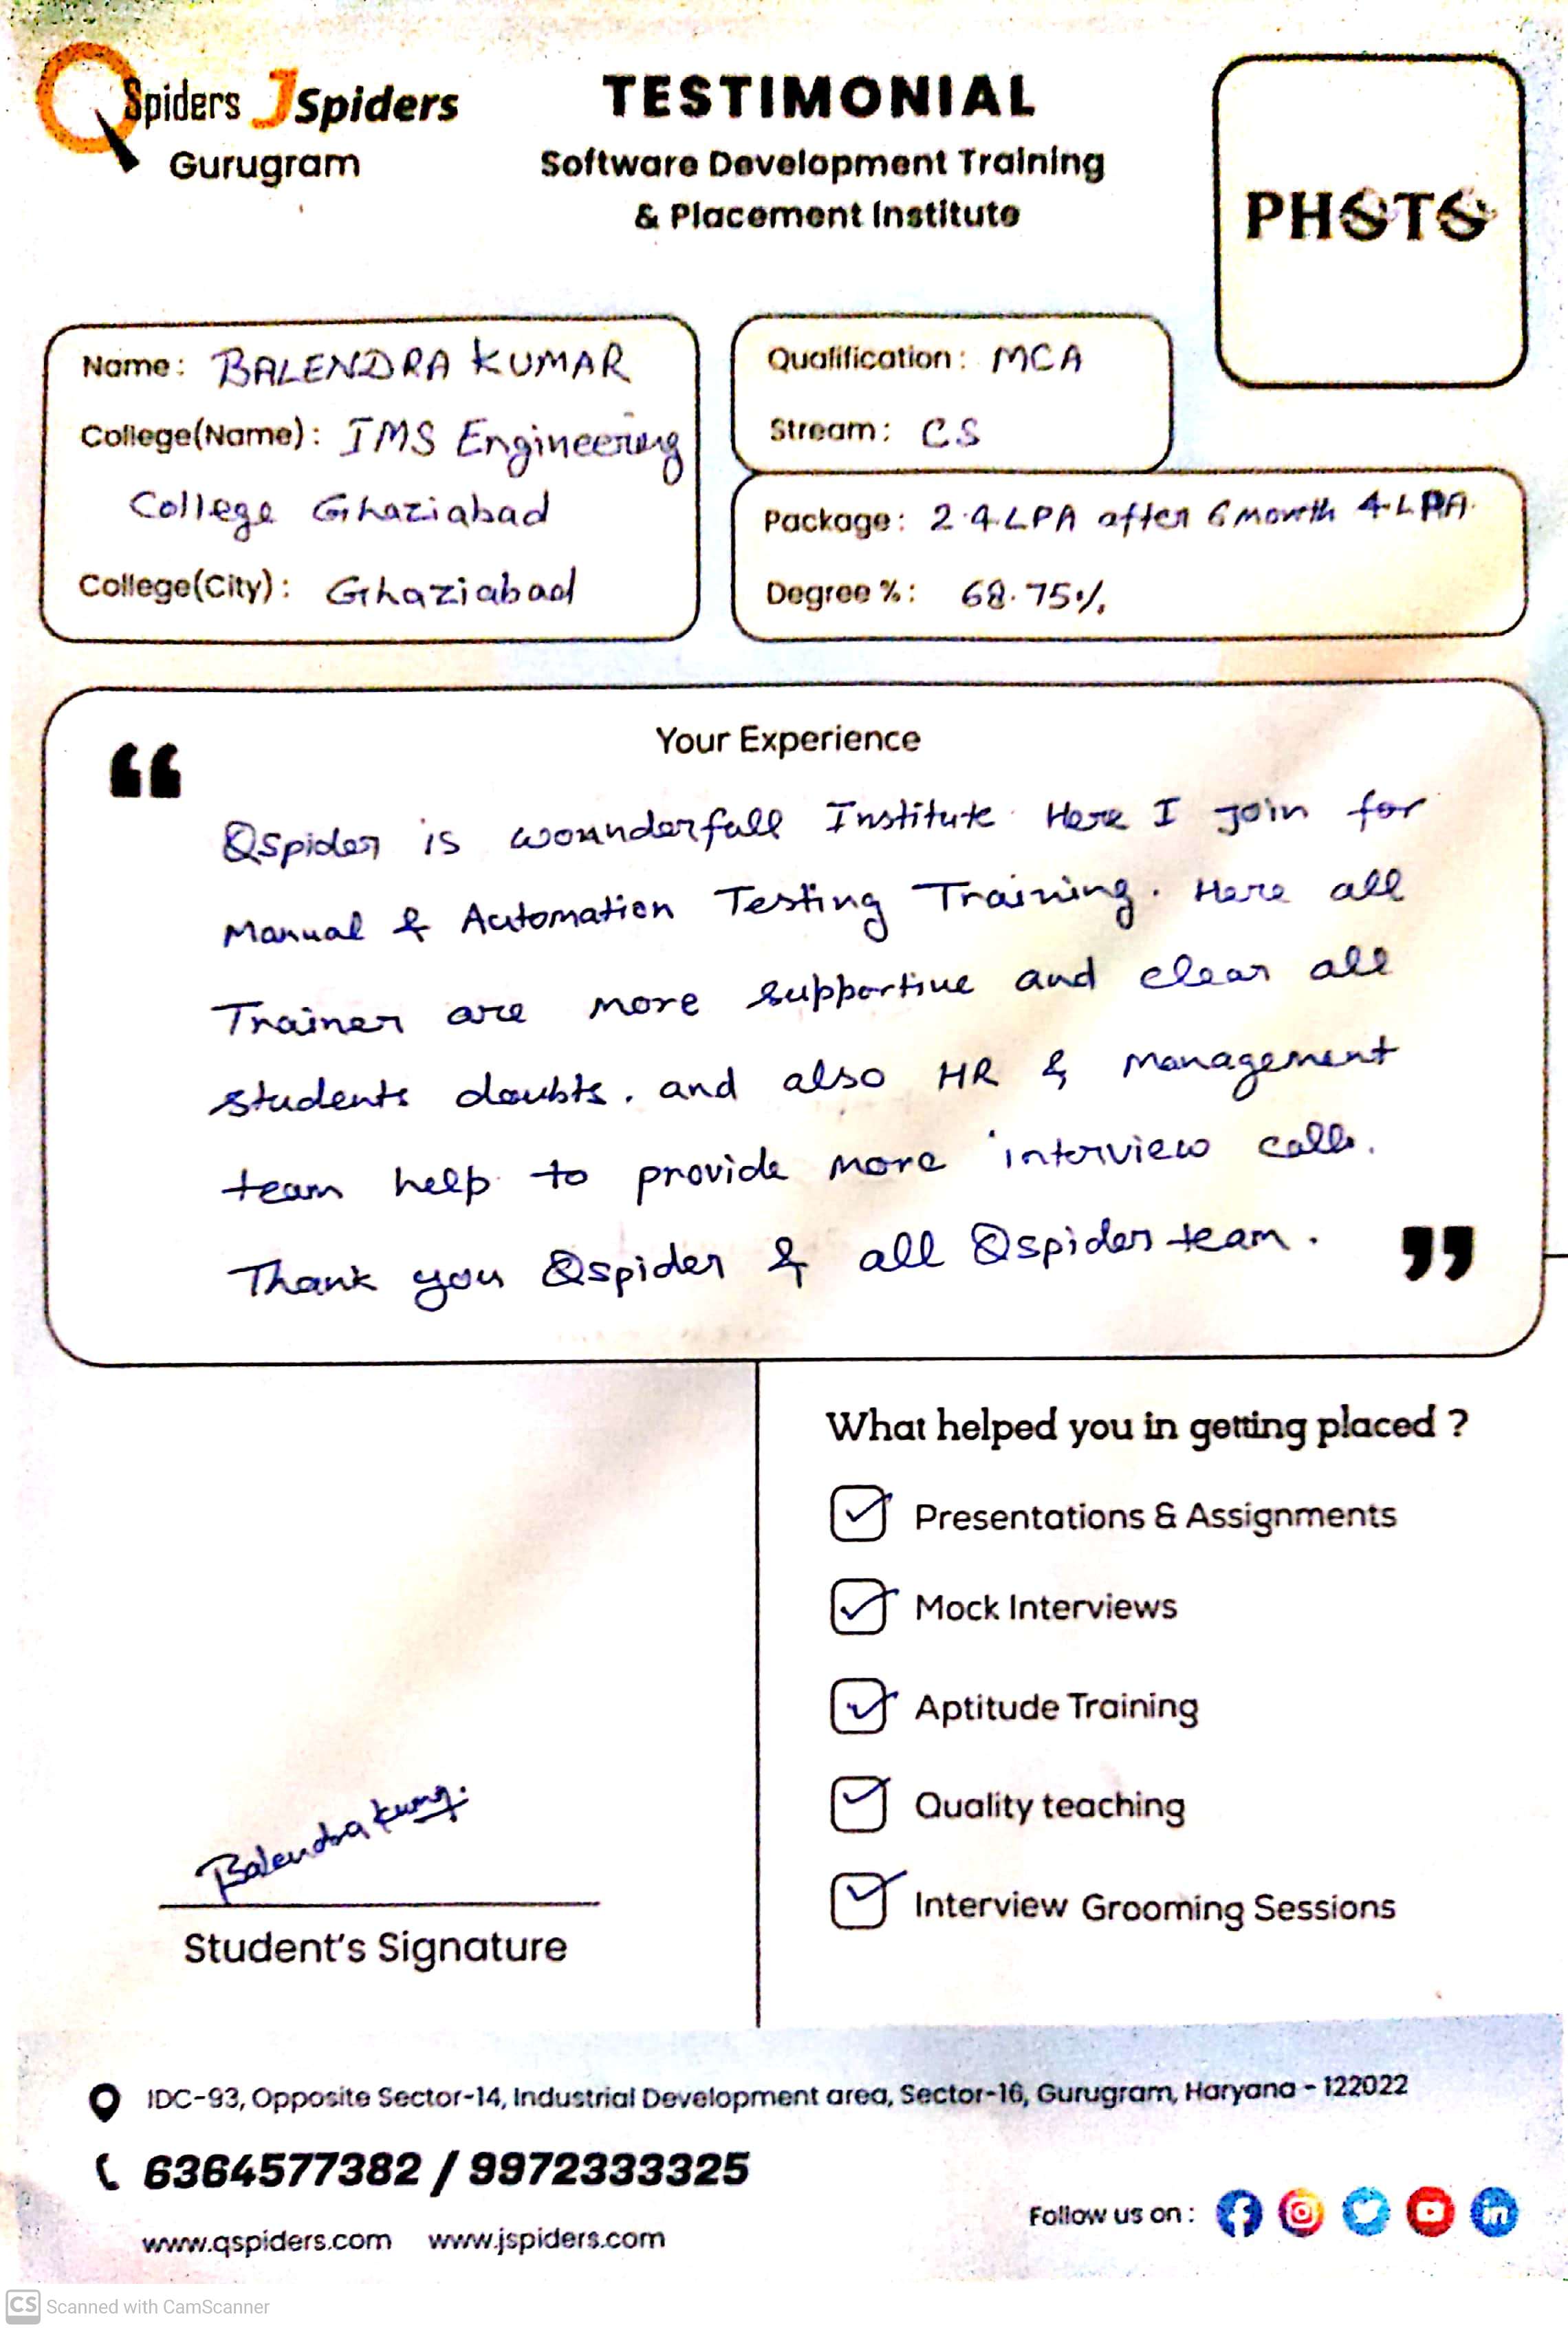 QSpiders JSpiders
Gurugram
TESTIMONIAL
Software Development Training
& Placement Institute
PHOTO
Name: BALENDRA KUMAR
College(Name): IMS Engineering
College Ghaziabad
College(City): Ghaziabad
Qualification: MCA
Stream: CS
Package: 2.4 LPA after 6 month 4.LPA.
Degree %: 68.75%
Your Experience
“
Qspider is wounderfull Institute Here I join for
Manual & Automation Testing Training. Here all
Trainer are more supportive and clear all
students doubts. and also HR & Management
team help to provide more interview calls.
Thank you Qspider & all Qspider team.
”
What helped you in getting placed ?
Presentations & Assignments
Mock Interviews
Aptitude Training
Quality teaching
Interview Grooming Sessions
Balendra Kumar
Student's Signature
IDC-93, Opposite Sector-14, Industrial Development area, Sector-16, Gurugram, Haryana - 122022
6364577382 / 9972333325
www.qspiders.com www.jspiders.com
Follow us on :
CS Scanned with CamScanner